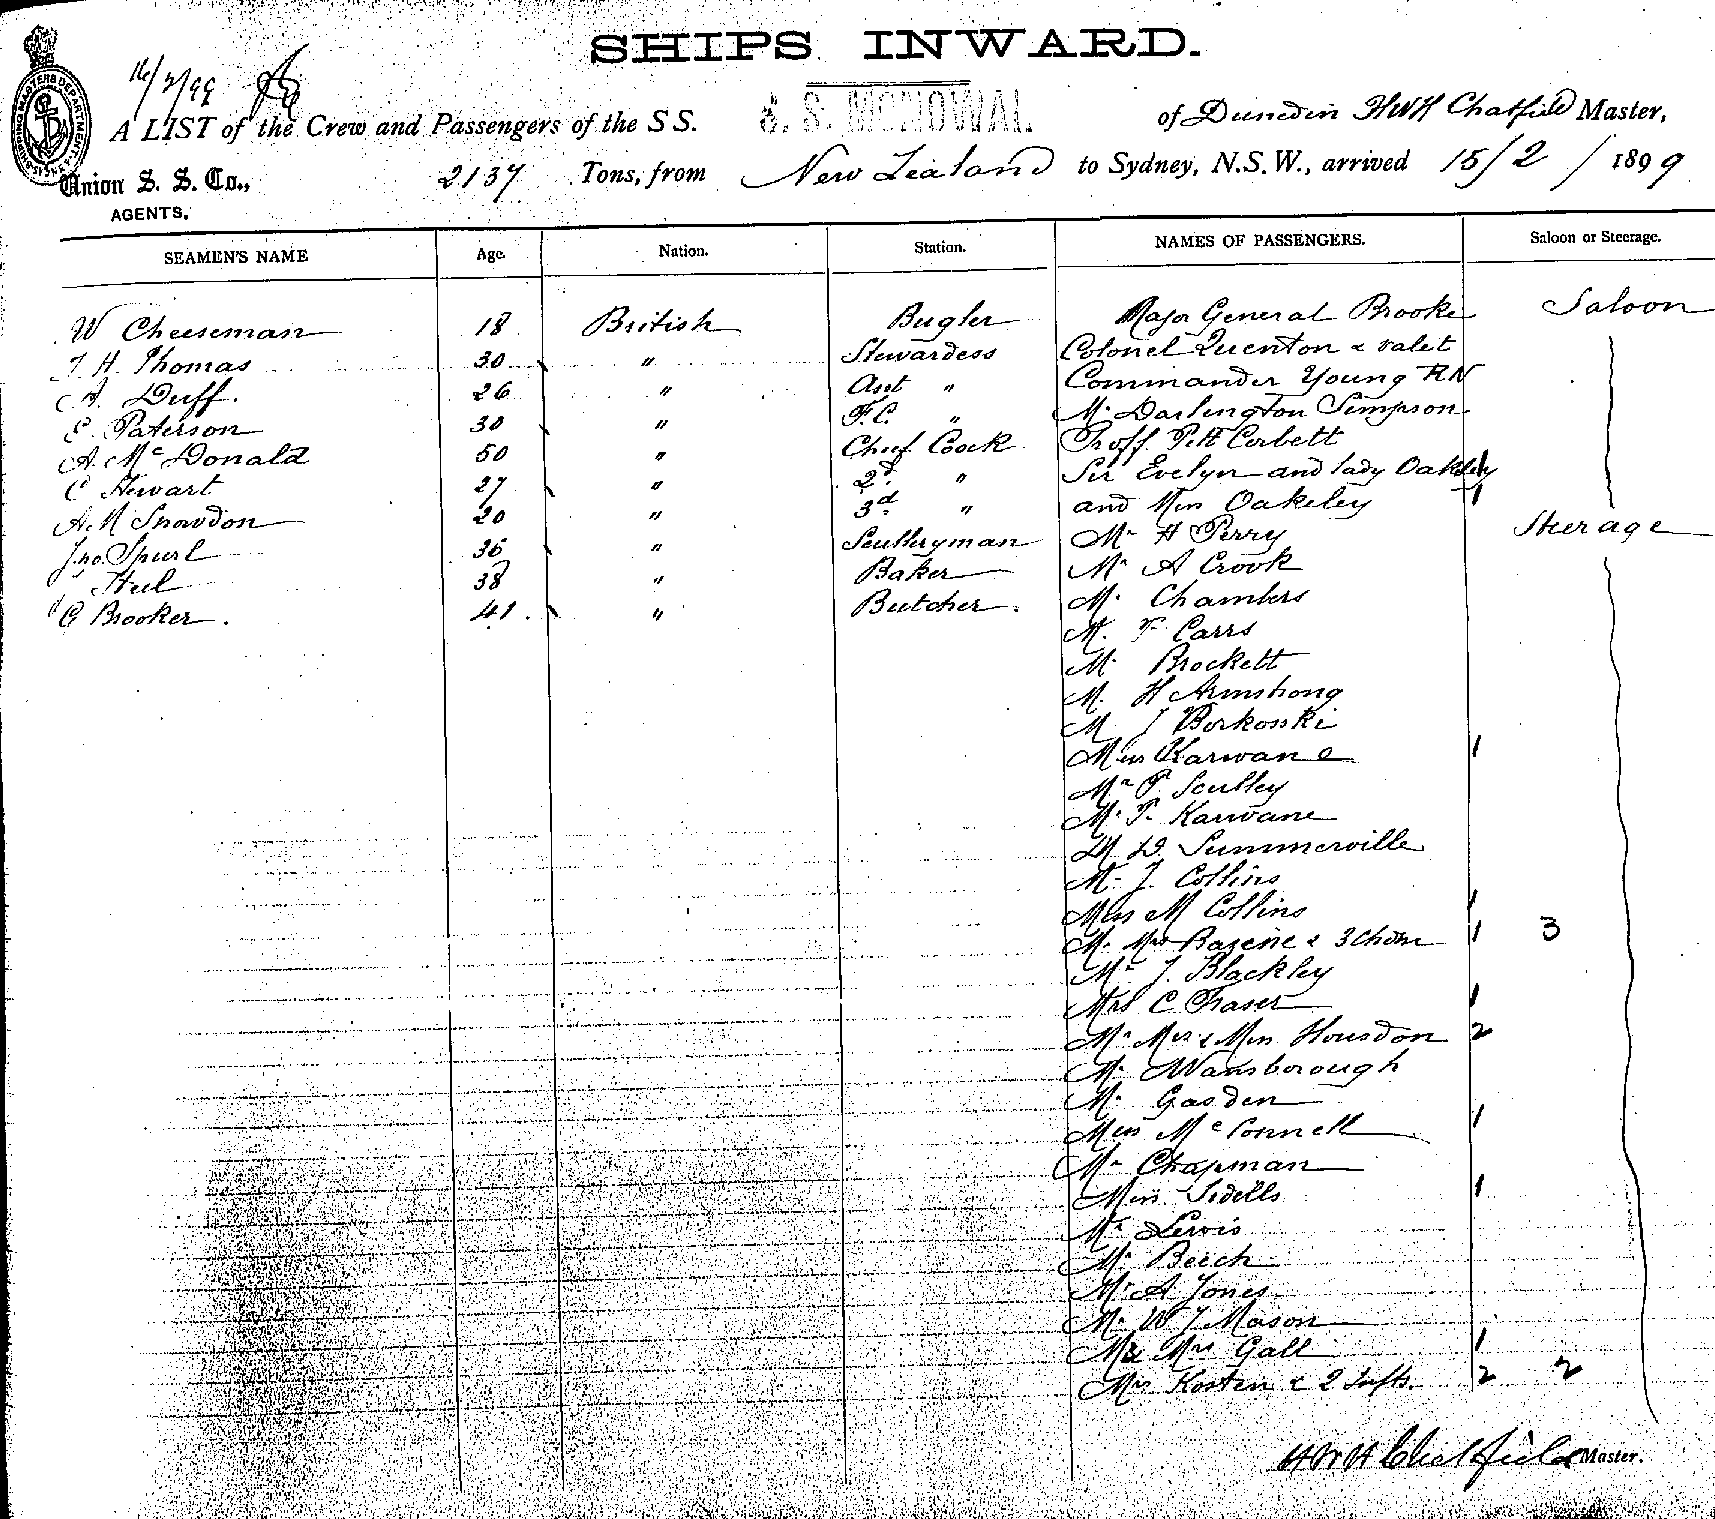 SHIPS INWARD.
16/2/99
A LIST of the Crew and Passengers of the S S. S. S. MONOWAI. of Dunedin HWH Chatfield Master,
Union S. S. Co., 2137 Tons, from New Zealand to Sydney, N.S.W., arrived 15/2/1899
AGENTS.
SEAMEN'S NAME Age. Nation. Station. NAMES OF PASSENGERS. Saloon or Steerage.
W Cheeseman 18 British Bugler Major General Brooke Saloon
J. H. Thomas 30 " Stewardess Colonel Quenton & valet
A. Duff. 26 " Asst " Commander Young RN
E. Paterson 30 " F.C. " Mr Darlington Simpson
A. McDonald 50 " Chief Cook Proff. P.H Corbett
C Stewart 27 " 2d " Sir Evelyn and lady Oakley
A. M Snowdon 20 " 3d " and Miss Oakeley 1
Jno. Spurl 36 " Sculleryman Mr H Perry Steerage
Steel 38 " Baker Mr A Crook
C Brooker. 41. " Butcher. Mr Chambers
Mr F Carrs
Mr Brockett
Mr H Armstrong
Mr J Borkosski
Miss Karwane 1
Mr P. Sculley
Mr P. Karwane
Mr D. Summerville
Mr J. Collins
Miss M Collins 1
Mr Mrs Bazeine & 3 Chdn 1 3
Mr J. Blackley
Mrs C Fraser 1
Mr Mrs & Miss Housdon 2
Mr Wansborough
Mr Gasden
Miss McConnell 1
Mr Chapman
Miss Sidells 1
Mr Lewis
Mr Beech
Mr A Jones
Mr W J Mason
Mr & Mrs Gall 1
Mrs Kosten & 2 Infts. 2 2
HWH Chatfield Master.